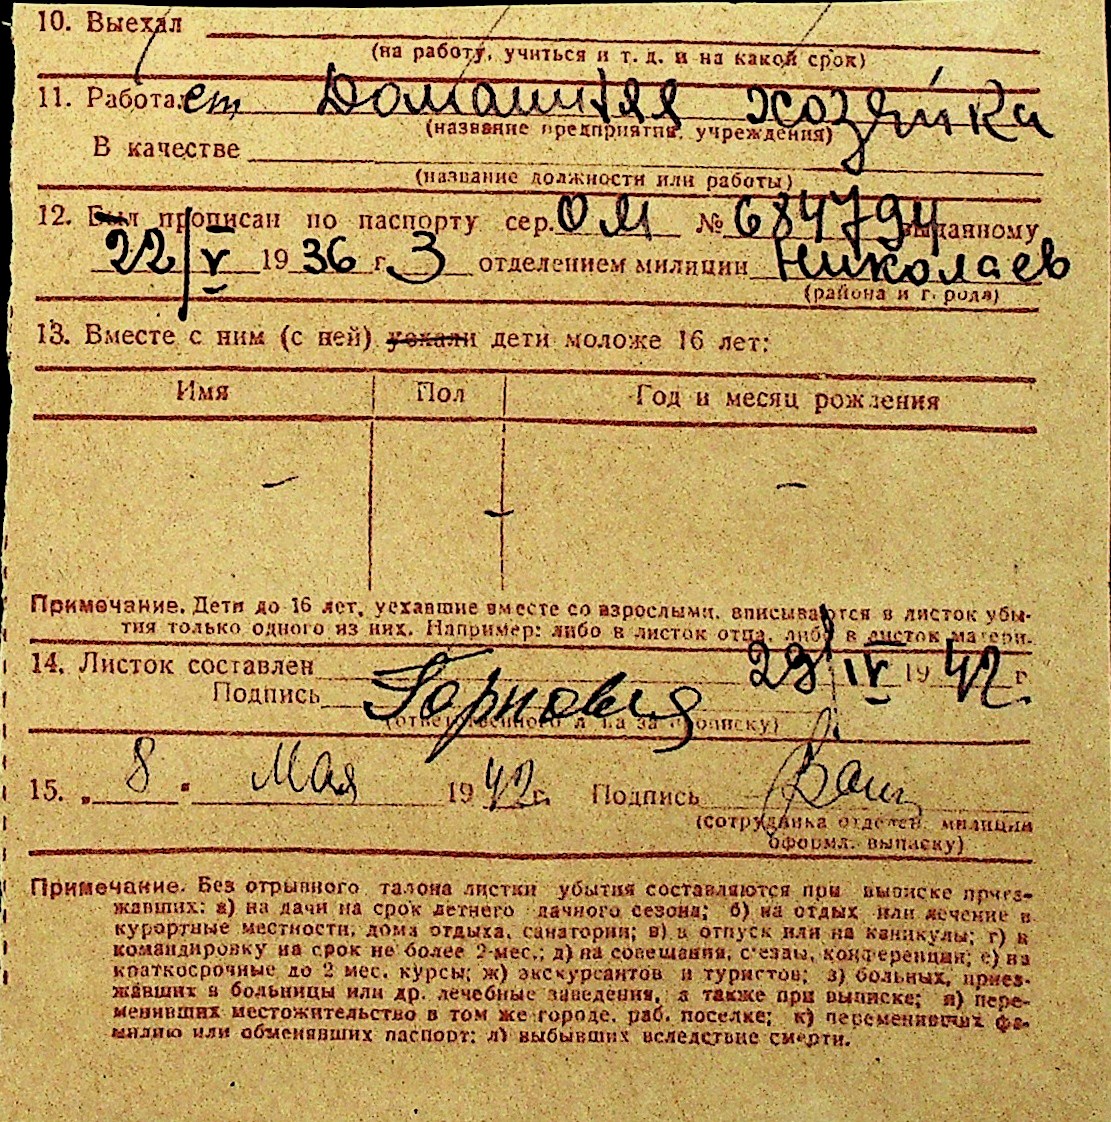 10. Выехал
(на работу, учиться и т. д. и на какой срок)
11. Работает Домашняя хозяйка
(название предприятия, учреждения)
В качестве
(название должности или работы)
12. Был прописан по паспорту сер. ОМ № 684794 выданному
22/V 1936 г. 3 отделением милиции Николаев
(района и города)
13. Вместе с ним (с ней) уехали дети моложе 16 лет:
Имя Пол Год и месяц рождения
— — —
Примечание. Дети до 16 лет, уехавшие вместе со взрослыми, вписываются в листок убы-
тия только одного из них. Например: либо в листок отца, либо в листок матери.
14. Листок составлен 29/IV 1942 г.
Подпись
(ответственного л-ца за прописку)
15. „ 8 " Мая 1942 г. Подпись
(сотрудника отделен. милиции
оформл. выписку)
Примечание. Без отрывного талона листки убытия составляются при выписке приез-
жавших: а) на дачи на срок летнего дачного сезона; б) на отдых или лечение в
курортные местности, дома отдыха, санатории; в) в отпуск или на каникулы; г) в
командировку на срок не более 2-мес.; д) на совещания, съезды, конференции; е) на
краткосрочные до 2 мес. курсы; ж) экскурсантов и туристов; з) больных, приез-
жавших в больницы или др. лечебные заведения, а также при выписке; и) пере-
менивших местожительство в том же городе, раб. поселке; к) переменивших фа-
милию или обменявших паспорт; л) выбывших вследствие смерти.